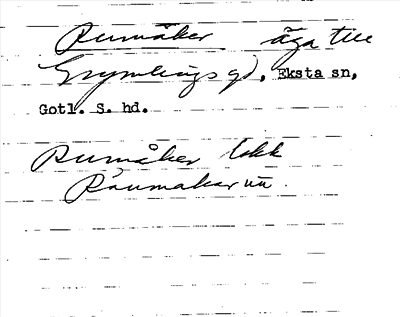 Rumåker äga till
Grymlings gd, Eksta sn,
Gotl. S. hd.
Rumåker lokk
Råumakerun.